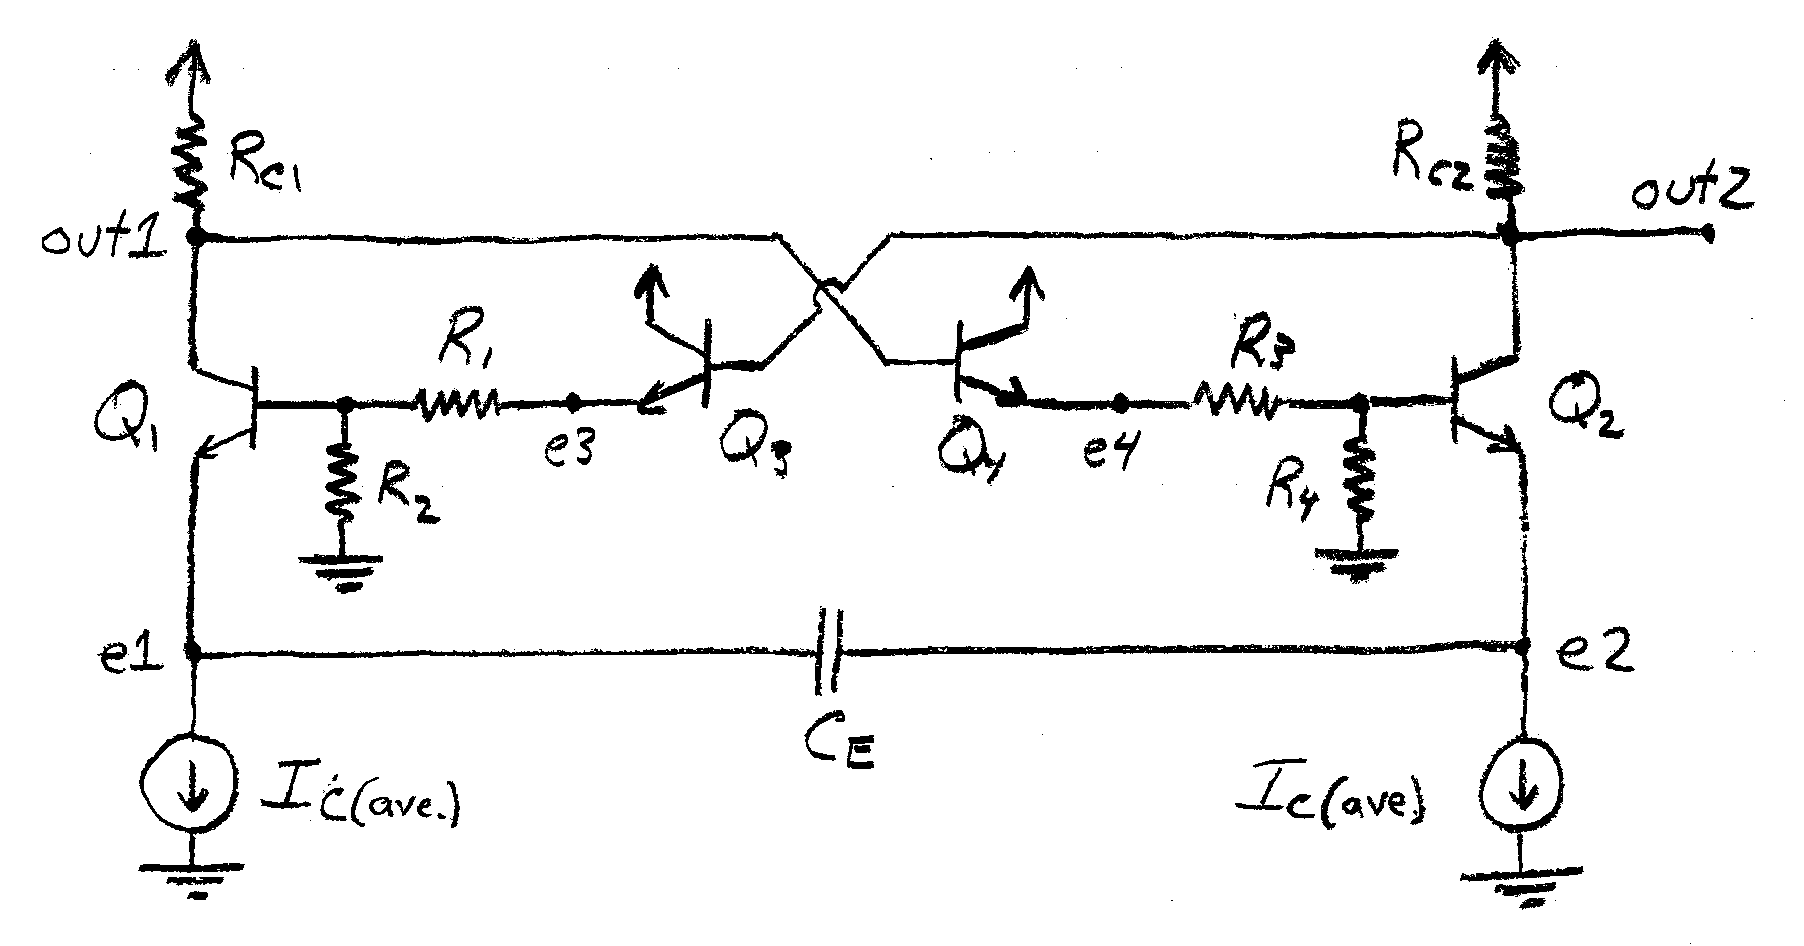 RC1
RC2
out1
out2
R1
R3
Q1
Q2
e3
Q3
Q4
e4
R2
R4
e1
e2
CE
IC(ave.)
IC(ave)